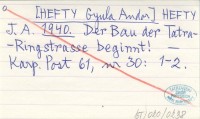 [HEFTY Gyula Andor] HEFTY
J. A. 1940. Der Bau der Tatra-
-Ringstrasse beginnt! —
Karp. Post 61, nr 30: 1-2.